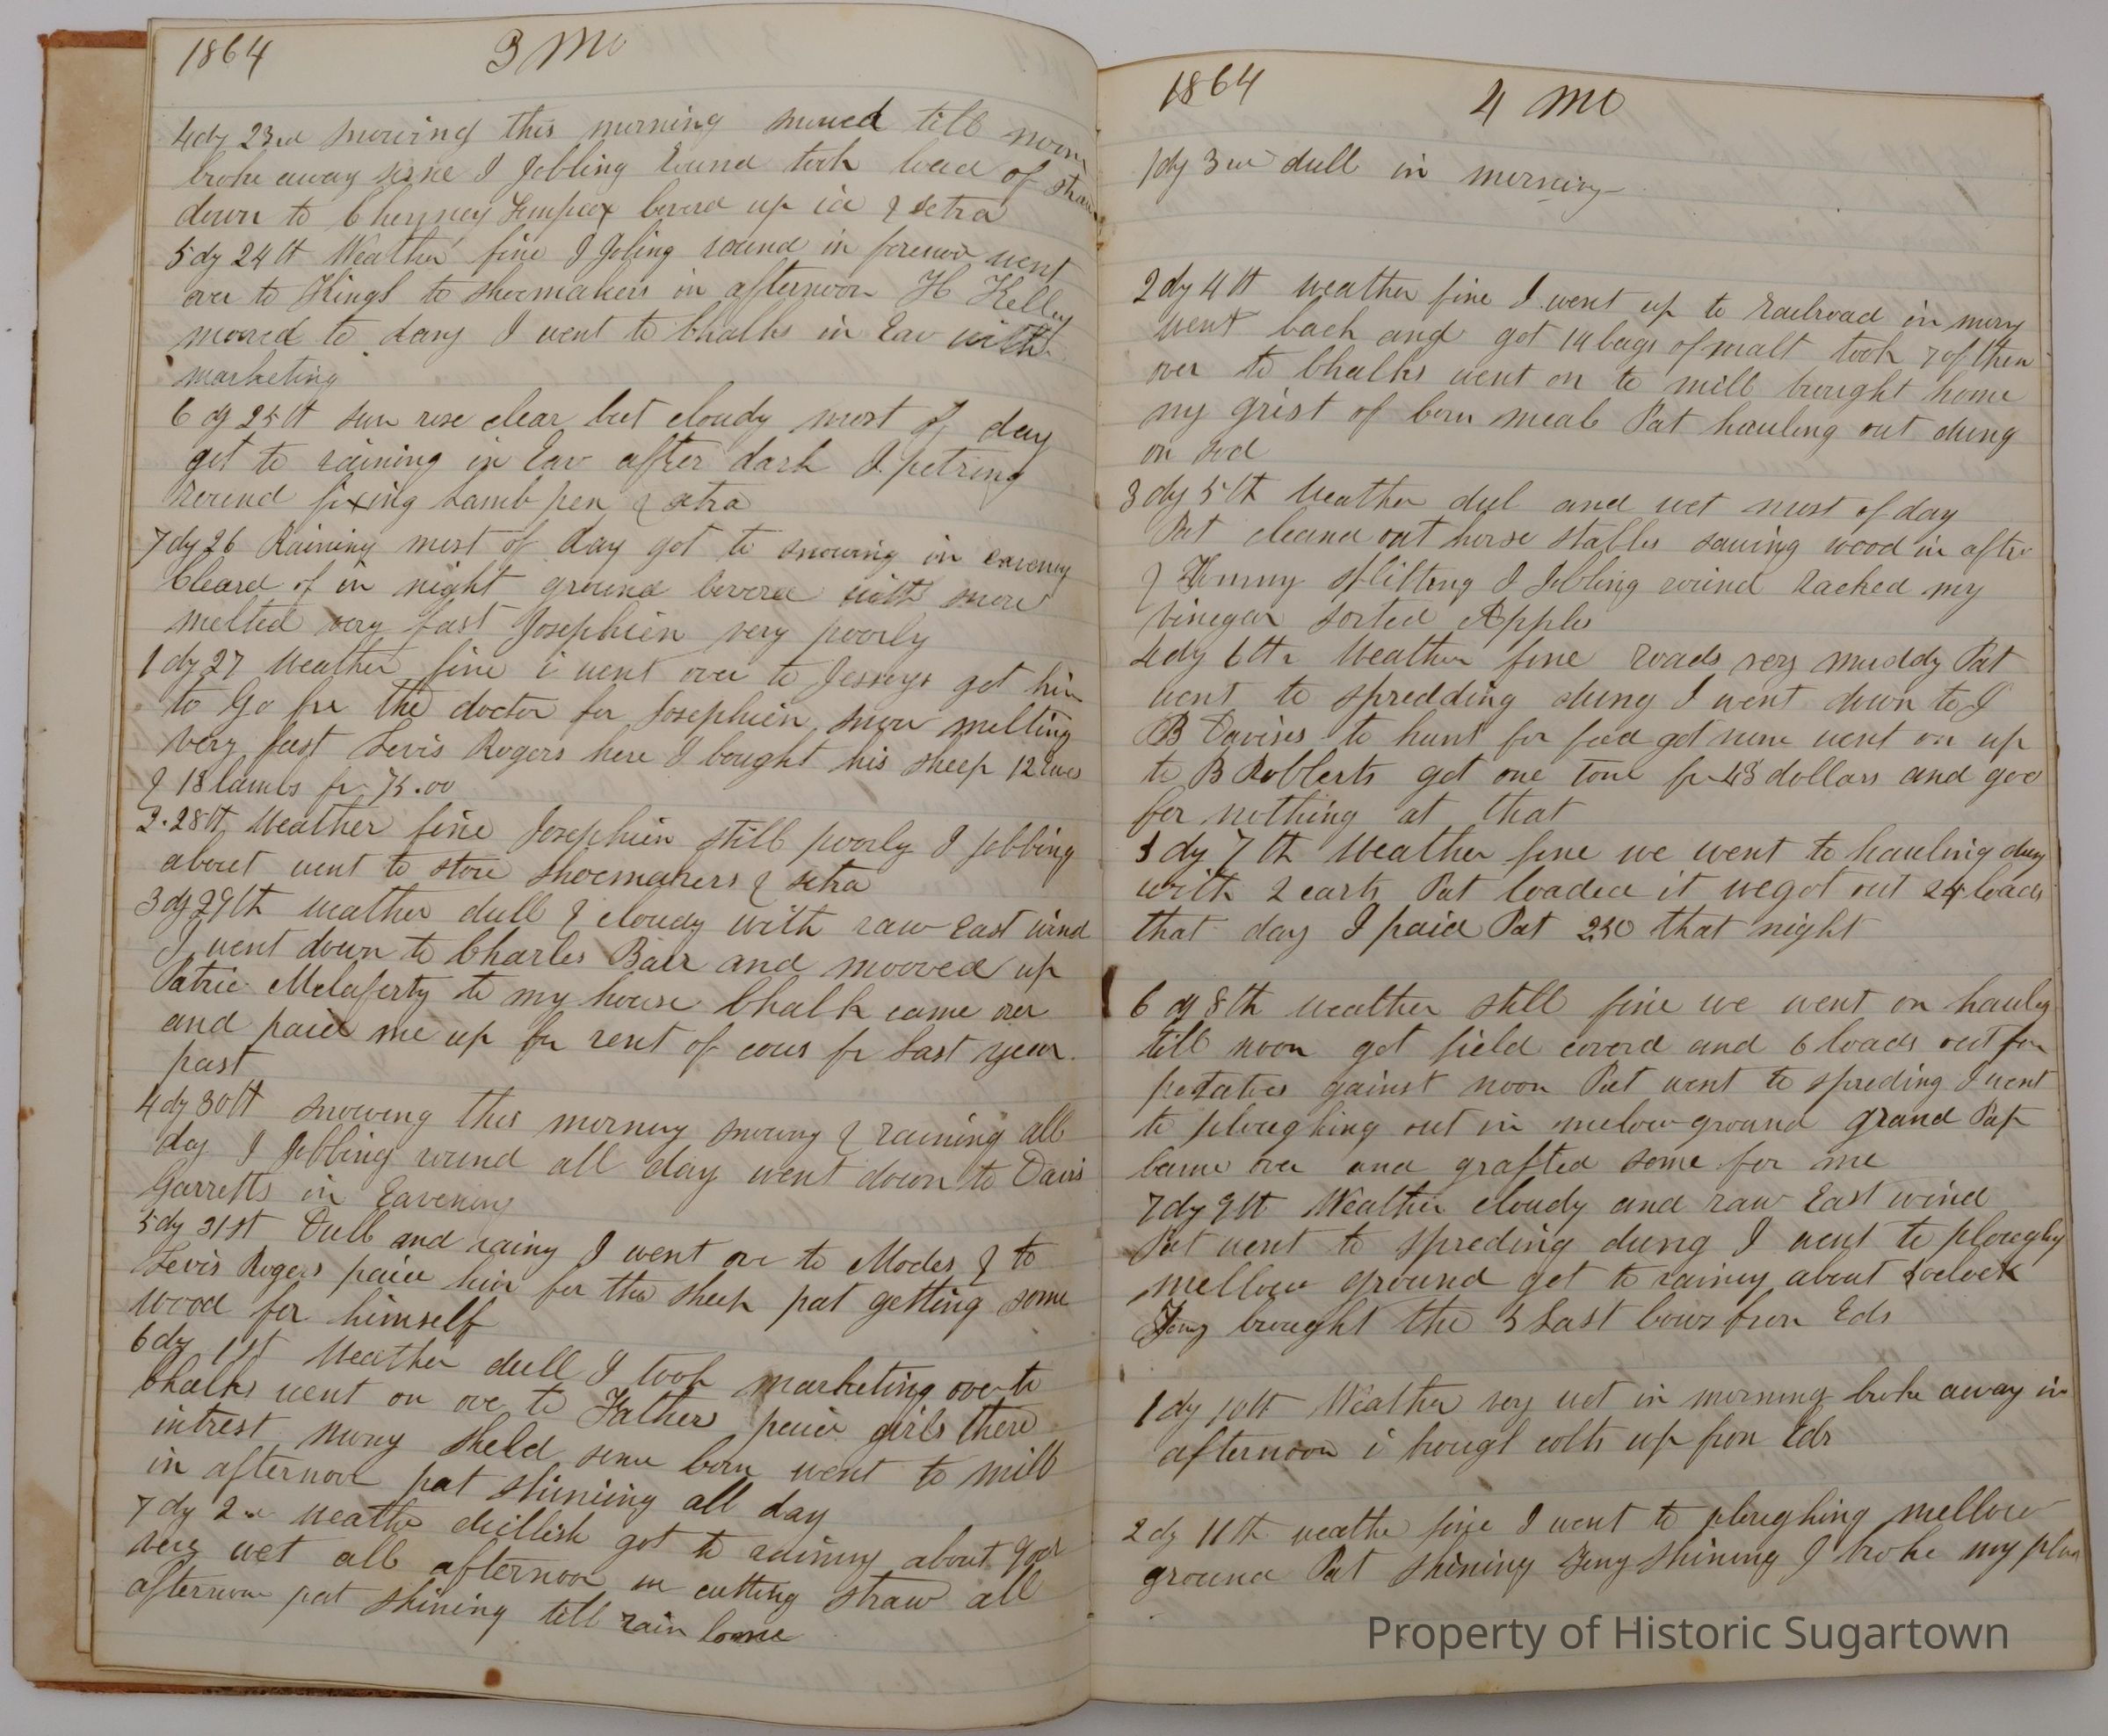 1864 3 Mo
4dy 23rd snowing this morning snowed till noon
broke away some I Jobling round took load of straw
down to Chenney coverd up ice & setra
5dy 24th Weather fine I Jobing round in forenoon went
over to Kings to shoemakers in afternoon H Kelley
moved to day I went to Chalks in Eav with
marketing
6 dy 25th sun rose clear but cloudy most of day
got to raining in Eav after dark I petring
round fixing Lamb pen & setra
7dy 26 Raining most of day got to snowing in eavening
Cleard of in night ground coverd with snow
melted very fast Josephien very poorly
1 dy 27 Weather fine i went over to Jesseys get him
to Go for the doctor for Josephien snow melting
very fast Levis Rogers here I bought his sheep 12 Ewes
& 18 lambs for 75.00
2.28th Weather fine Josephien still poorly I jobbing
about went to store shoemakers & setra
3 dy 29th weather dull & cloudy with raw East wind
I went down to Charles Baer and mooved up
Patric Mclaferty to my house Chalk came over
and paid me up for rent of cows for Last year
past
4dy 30th snowing this morning snowing & raining all
day I Jobbing round all day went down to Davis
Garretts in Eavening
5dy 31st Dull and rainy I went over to Modes & to
Levis Rogers paid him for the sheep pat getting some
wood for himself
6dy 1st Weather dull I took marketing over to
Chalks went on over to Fathers paid girls there
intrest mony sheld some corn went to mill
in afternoon pat shining all day
7 dy 2nd weather dullish got to raining about 9 ocl
very wet all afternoon cutting straw all
afternoon pat shining till rain come
1864 4 mo
1dy 3rd dull in morning
2dy 4th weather fine I went up to railroad in morng
went back and got 14 bags of malt took 7 of then
over to Chalks went on to mill brought home
my grist of corn meal Pat hauling out dung
on sod
3 dy 5th Weather dul and wet most of day
Pat cleand out horse stables sawing wood in after
& splitting I Jobling round racked my
vinegar sorted Apples
4dy 6th Weather fine roads very muddy Pat
went to spredding dung I went down to J
B Davises to hunt for feed got none went on up
to B Robberts got one tone for 48 dollars and goo
for nothing at that
5 dy 7th Weather fine we went to hauling dung
with 2 carts Pat loaded it we got out 24 loads
that day I paid Pat 2.50 that night
6 dy 8th weather still fine we went on haulig
till noon got field coverd and 6 loads out for
potatoes gainst noon Pat went to spreding I went
to ploughing out in melow ground grand Pap
came over and grafted some for me
7dy 9th Weather cloudy and raw East wind
Pat went to spreding dung I went to ploughg
mellow ground got to rainey about oclock
brought the 3 Last cows from Eds
1 dy 10th Weather very wet in morning broke away in
afternoon i brougt colts up from Eds
2 dy 11th weather fine I went to ploughing mellow
ground Pat shining shining I broke my plow
Property of Historic Sugartown